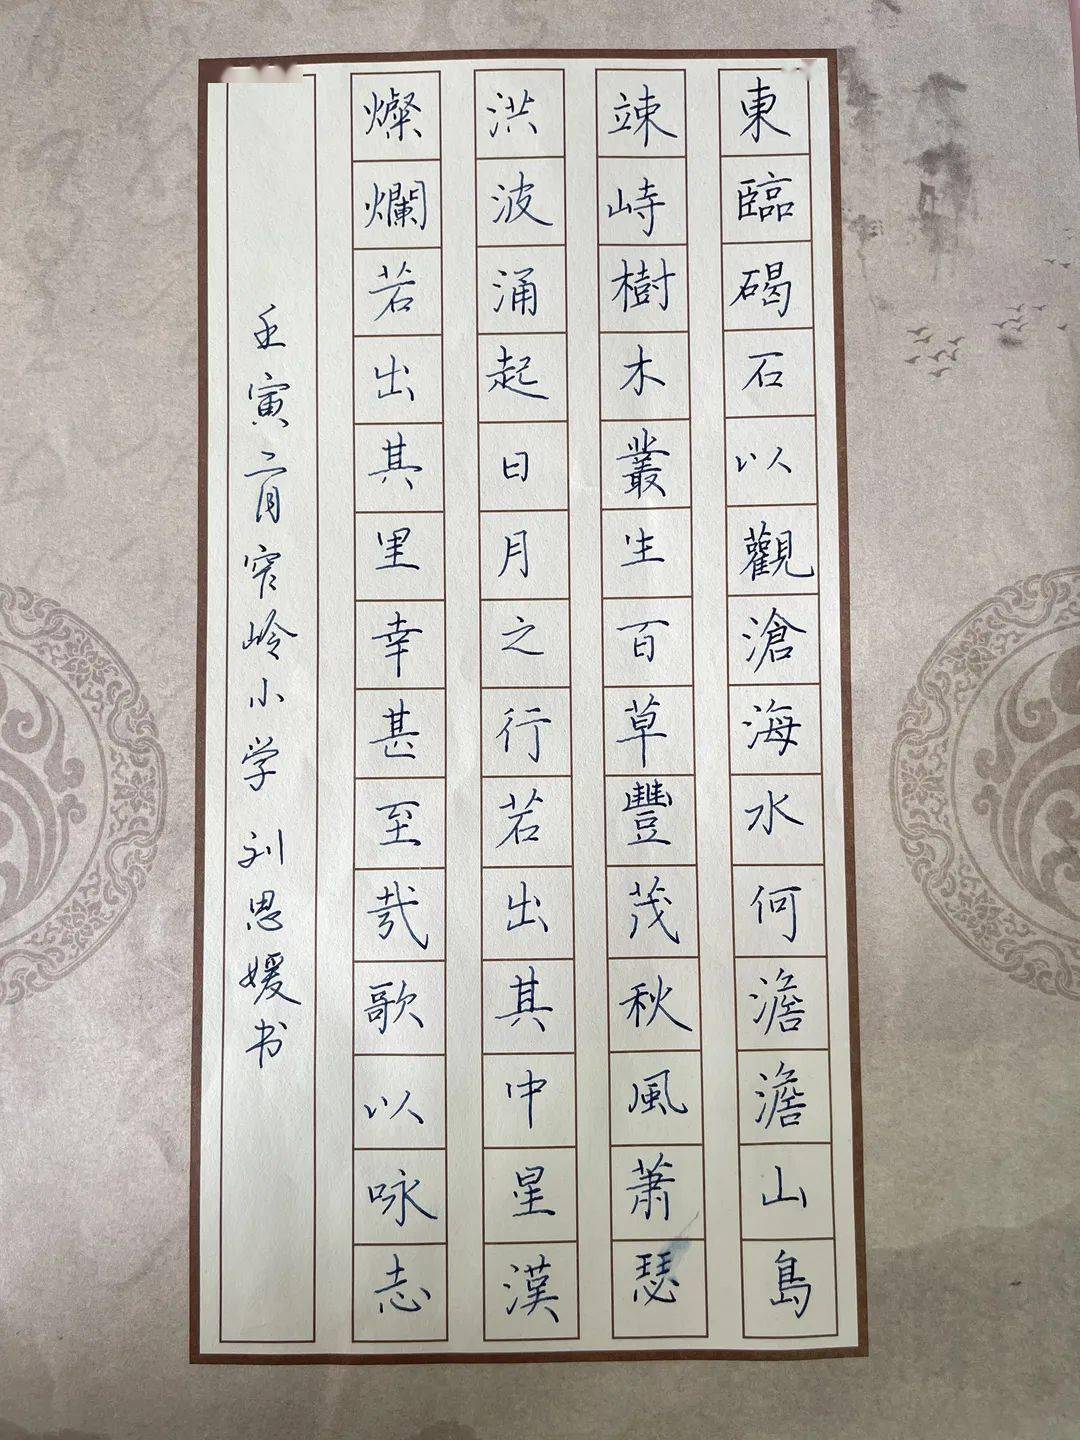 東臨碣石以觀滄海水何澹澹山島
竦峙樹木叢生百草豐茂秋風萧瑟
洪波涌起日月之行若出其中星漢
燦爛若出其里幸甚至哉歌以咏志
壬寅二月窄岭小学刘思媛书